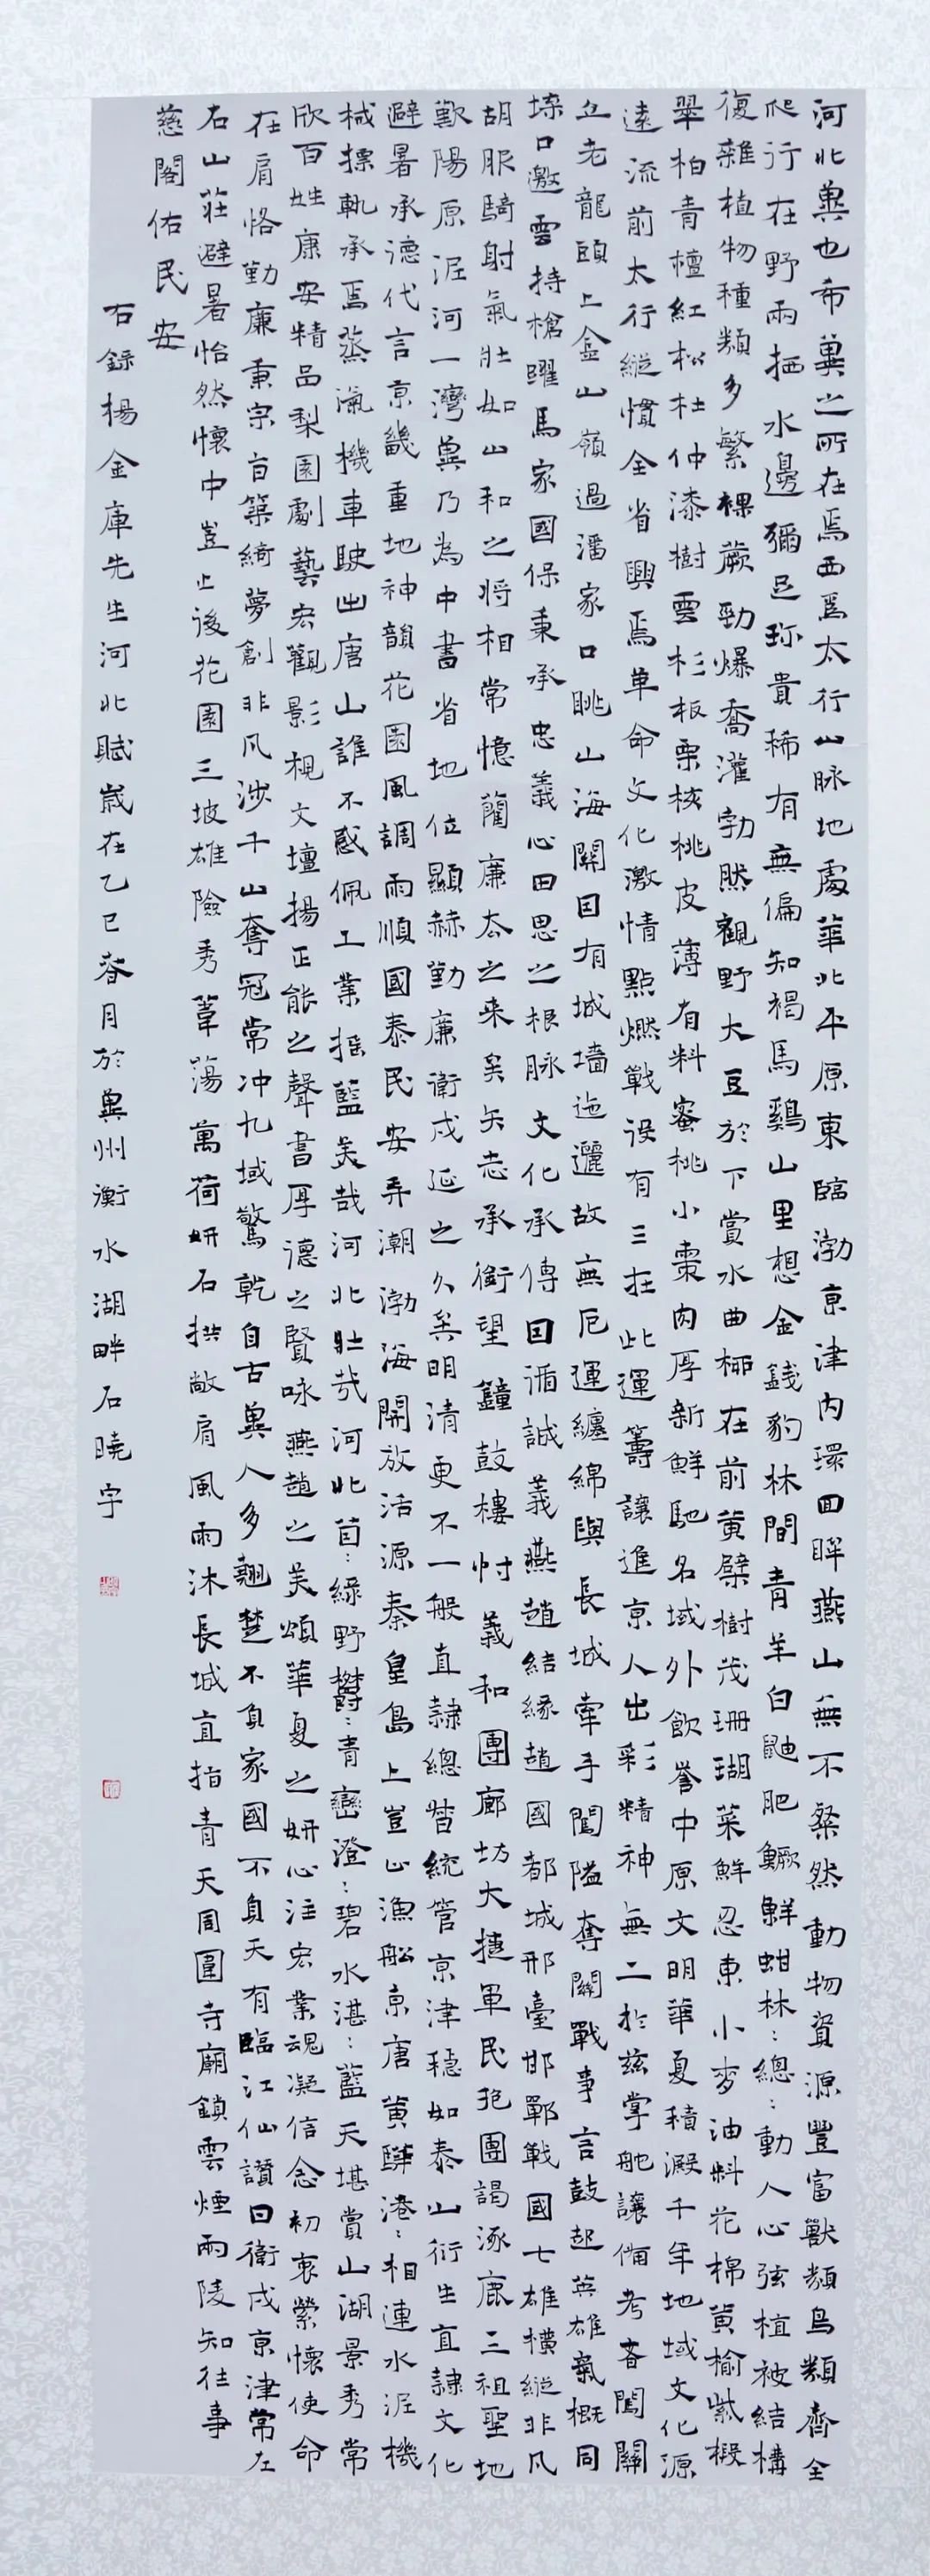 河北冀也布冀之所在焉西爲太行山脉地處華北平原東臨渤京津内環回眸燕山無不粲然動物資源豐富獸類鳥類齊全
爬行在野兩栖水邊彌足珍貴稀有無偏知褐馬鷄山里想金錢豹林間青羊白鼬肥鱖鮮蚶林:總:動人心弦植被結構
復雜植物種類多繁裸蕨勁爆喬灌勃然觀野大豆於下賞水曲柳在前黄檗樹茂珊瑚菜鮮忍東小麥油料花棉黄榆紫椴
翠柏青檀紅松杜仲漆樹雲杉板栗核桃皮薄有料蜜桃小棗肉厚新鮮馳名域外飲譽中原文明華夏積澱千年地域文化源
遠流前太行縱慣全省興焉革命文化激情點燃戰役有三在此運籌讓進京人出彩精神無二於兹掌舵讓備考者闖關
立老龍頭上金山嶺過潘家口眺山海關因有城墻迤邐故無厄運纏綿與長城牽手闖隘奪關戰事言鼓起英雄氣概同
垜口邀雲持槍躍馬家國保秉承忠義心田思之根脉文化承傳因循誠義燕趙結緣趙國都城邢臺邯鄲戰國七雄横縱非凡
胡服騎射氣壯如山和之將相常憶藺廉態之来矣矢志承銜望鐘鼓樓忖義和團廊坊大捷軍民抱團謁涿鹿三祖聖地
歎陽原泥河一灣冀乃為中書省地位顯赫勤廉衛戍延之久矣明清更不一般直隸總督統管京津穩如泰山衍生直隸文化
避暑承德代言京畿重地神韻花園風調雨順國泰民安弄潮渤海開放活源秦皇島上豈止漁船京唐黄驊港:相連水泥機
械摽軌承焉蒸汽機車駛出唐山誰不感佩工業摇藍美哉河北壯哉河北茴:緑野欝:青巒澄:碧水湛:藍天堪賞山湖景秀常
欣百姓康安精品梨園劇藝宏觀影視文壇揚正能之聲書厚德之賢咏燕趙之美頌華夏之妍心注宏業魂凝信念初衷縈懷使命
在肩恪勤廉秉宗旨築綺夢創非凡涉千山奪冠常冲九域驚乾自古冀人多翹楚不負家國不負天有臨江仙讚曰衛戍京津常左
右山莊避暑怡然懷中豈止後花園三坡雄險秀葦蕩萬荷妍石拱敞肩風雨沐長城直指青天周圍寺廟鎖雲煙雨陵知往事
慈閣佑民安
右録楊金庫先生河北賦歲在乙巳春月於冀州衡水湖畔石曉宇